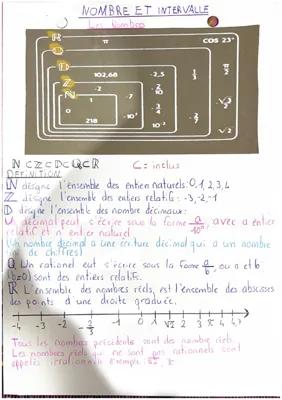 NOMBRE ET INTERVALLE
Les Nombres
R
π
COS 23°
Q
D
102,68
-2,5
Z
-2
N
1
-7
0
218
√2
ℕ ⊂ ℤ ⊂ D ⊂ Q ⊂ ℝ
⊂ = inclus
DEFINITION
ℕ désigne l'ensemble des entiers naturels: 0, 1, 2, 3, 4
ℤ désigne l'ensemble des entiers relatifs: -3, -2, -1
D désigne l'ensemble des nombre décimaux:
décimal peut s'écrire sous la forme a/10ⁿ, avec a entier
relatif et n entier naturel
(Un nombre décimal a une écriture décimal qui a un nombre
de chiffres)
Q Un rationnel eut s'écrire sous la forme a/b, où a et b
(b≠0) sont des entiers relatifs.
ℝ L'ensemble des nombres réels, est l'ensemble des abscisses
des points d'une droite graduée.
-4 -3 -2 -1 0 1 √2 2 3 π 4
Tous les nombres précédents sont des nombre réels.
Les nombres réels qui ne sont pas rationnels sont
appelés irrationnels. Exemple: √2, π